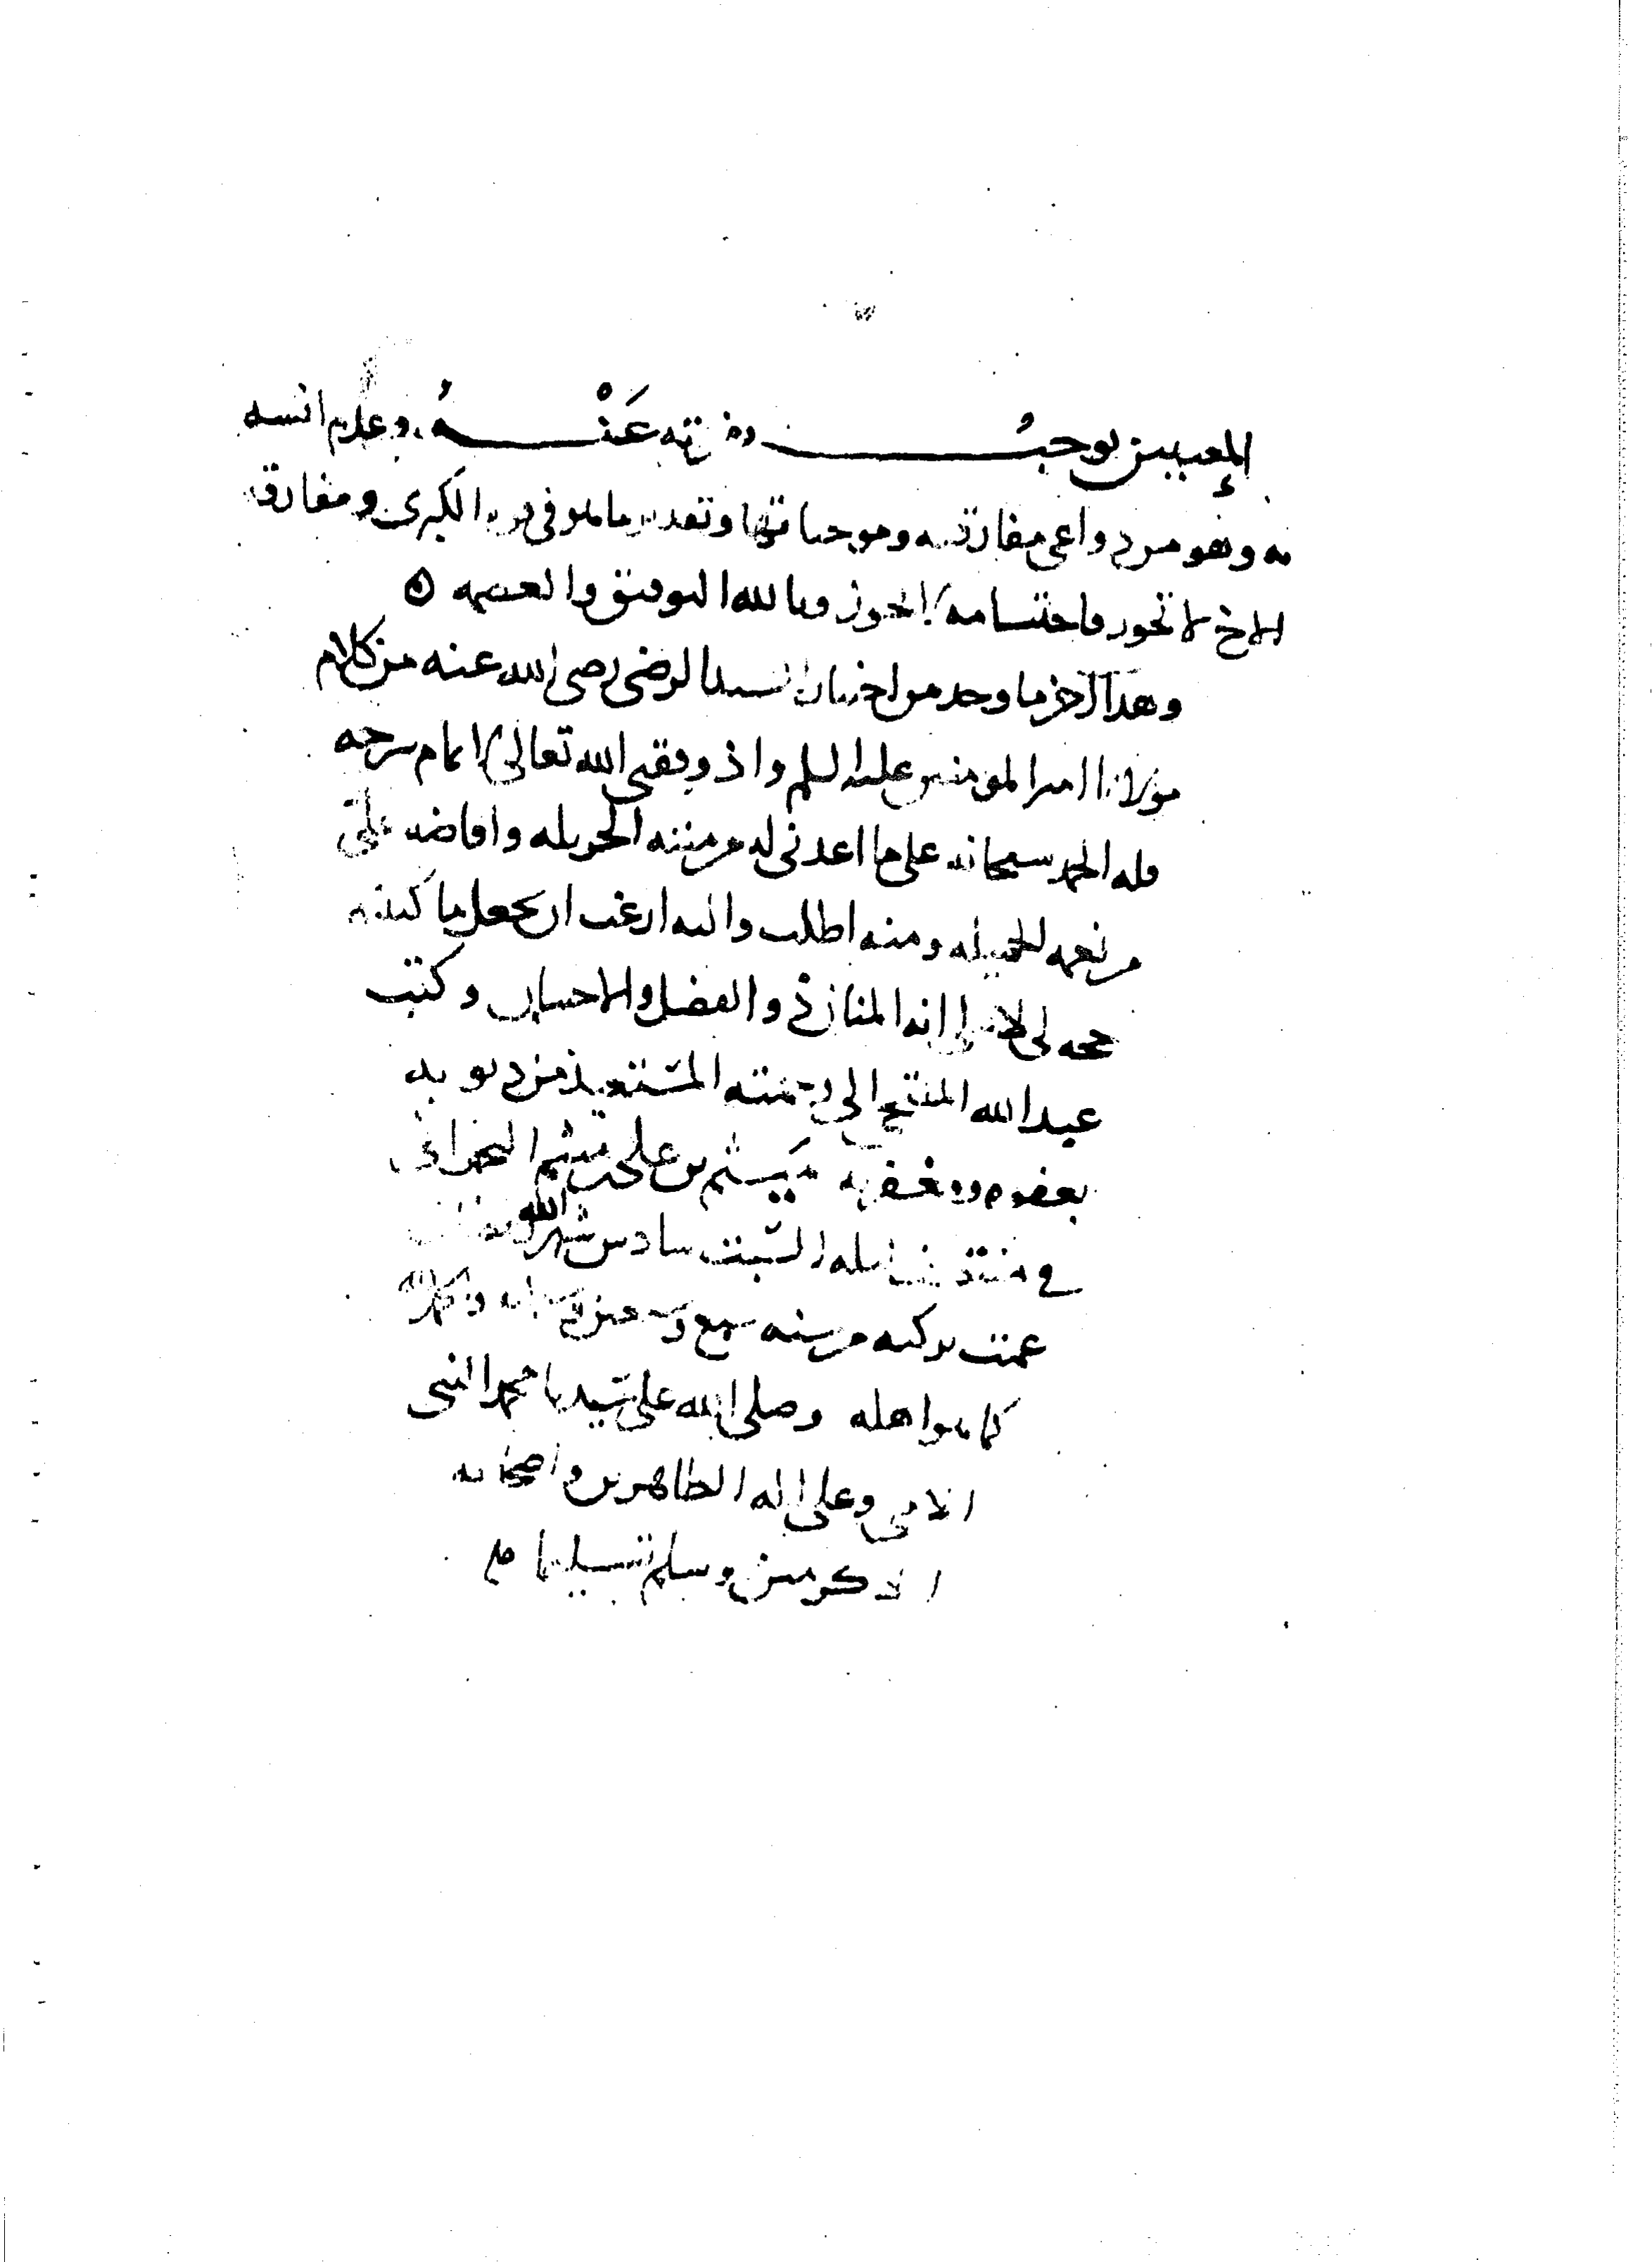 المعنيين يوجب نفرته عَنْهُ وعدم انسه
به وهو من دواعي مفارقته وموجباتها وتقدير ما هو في قوه الكبرى ومفارقه
الاخ لا تجوز فاحتشامه لا يجوز وبالله التوفيق والعصمه
وهذا آخر ما وجد من اختيار السيد الرضى رضى الله عنه من كلام
مولانا امير المومنين عليه السلم واذ وفقنى الله تعالى لاتمام شرحه
فله الحمد سبحانه على ما اعدنى له من مننه الجزيله وافاضه علىّ
من نعمه الجميله ومنه اطلب واليه ارغب ان يجعل ما كتبته
حجه لى لا على انه المنان ذي والفضل والاحسان وكتب
عبد الله الملتجى الى رحمته المستعيذ من ذنوبه
بعفوه ومغفرته ميثم بن على بن ميثم البحرانى
في منتصف ليله السبت سادس شهر الله
عمت بركته من سنه سبع وسبعين وستمايه والحمد لله
كما هو اهله وصلى الله على سيدنا محمد النبى
الامى وعلى اله الطاهرين واصحابه
الاكرمين وسلم تسليما